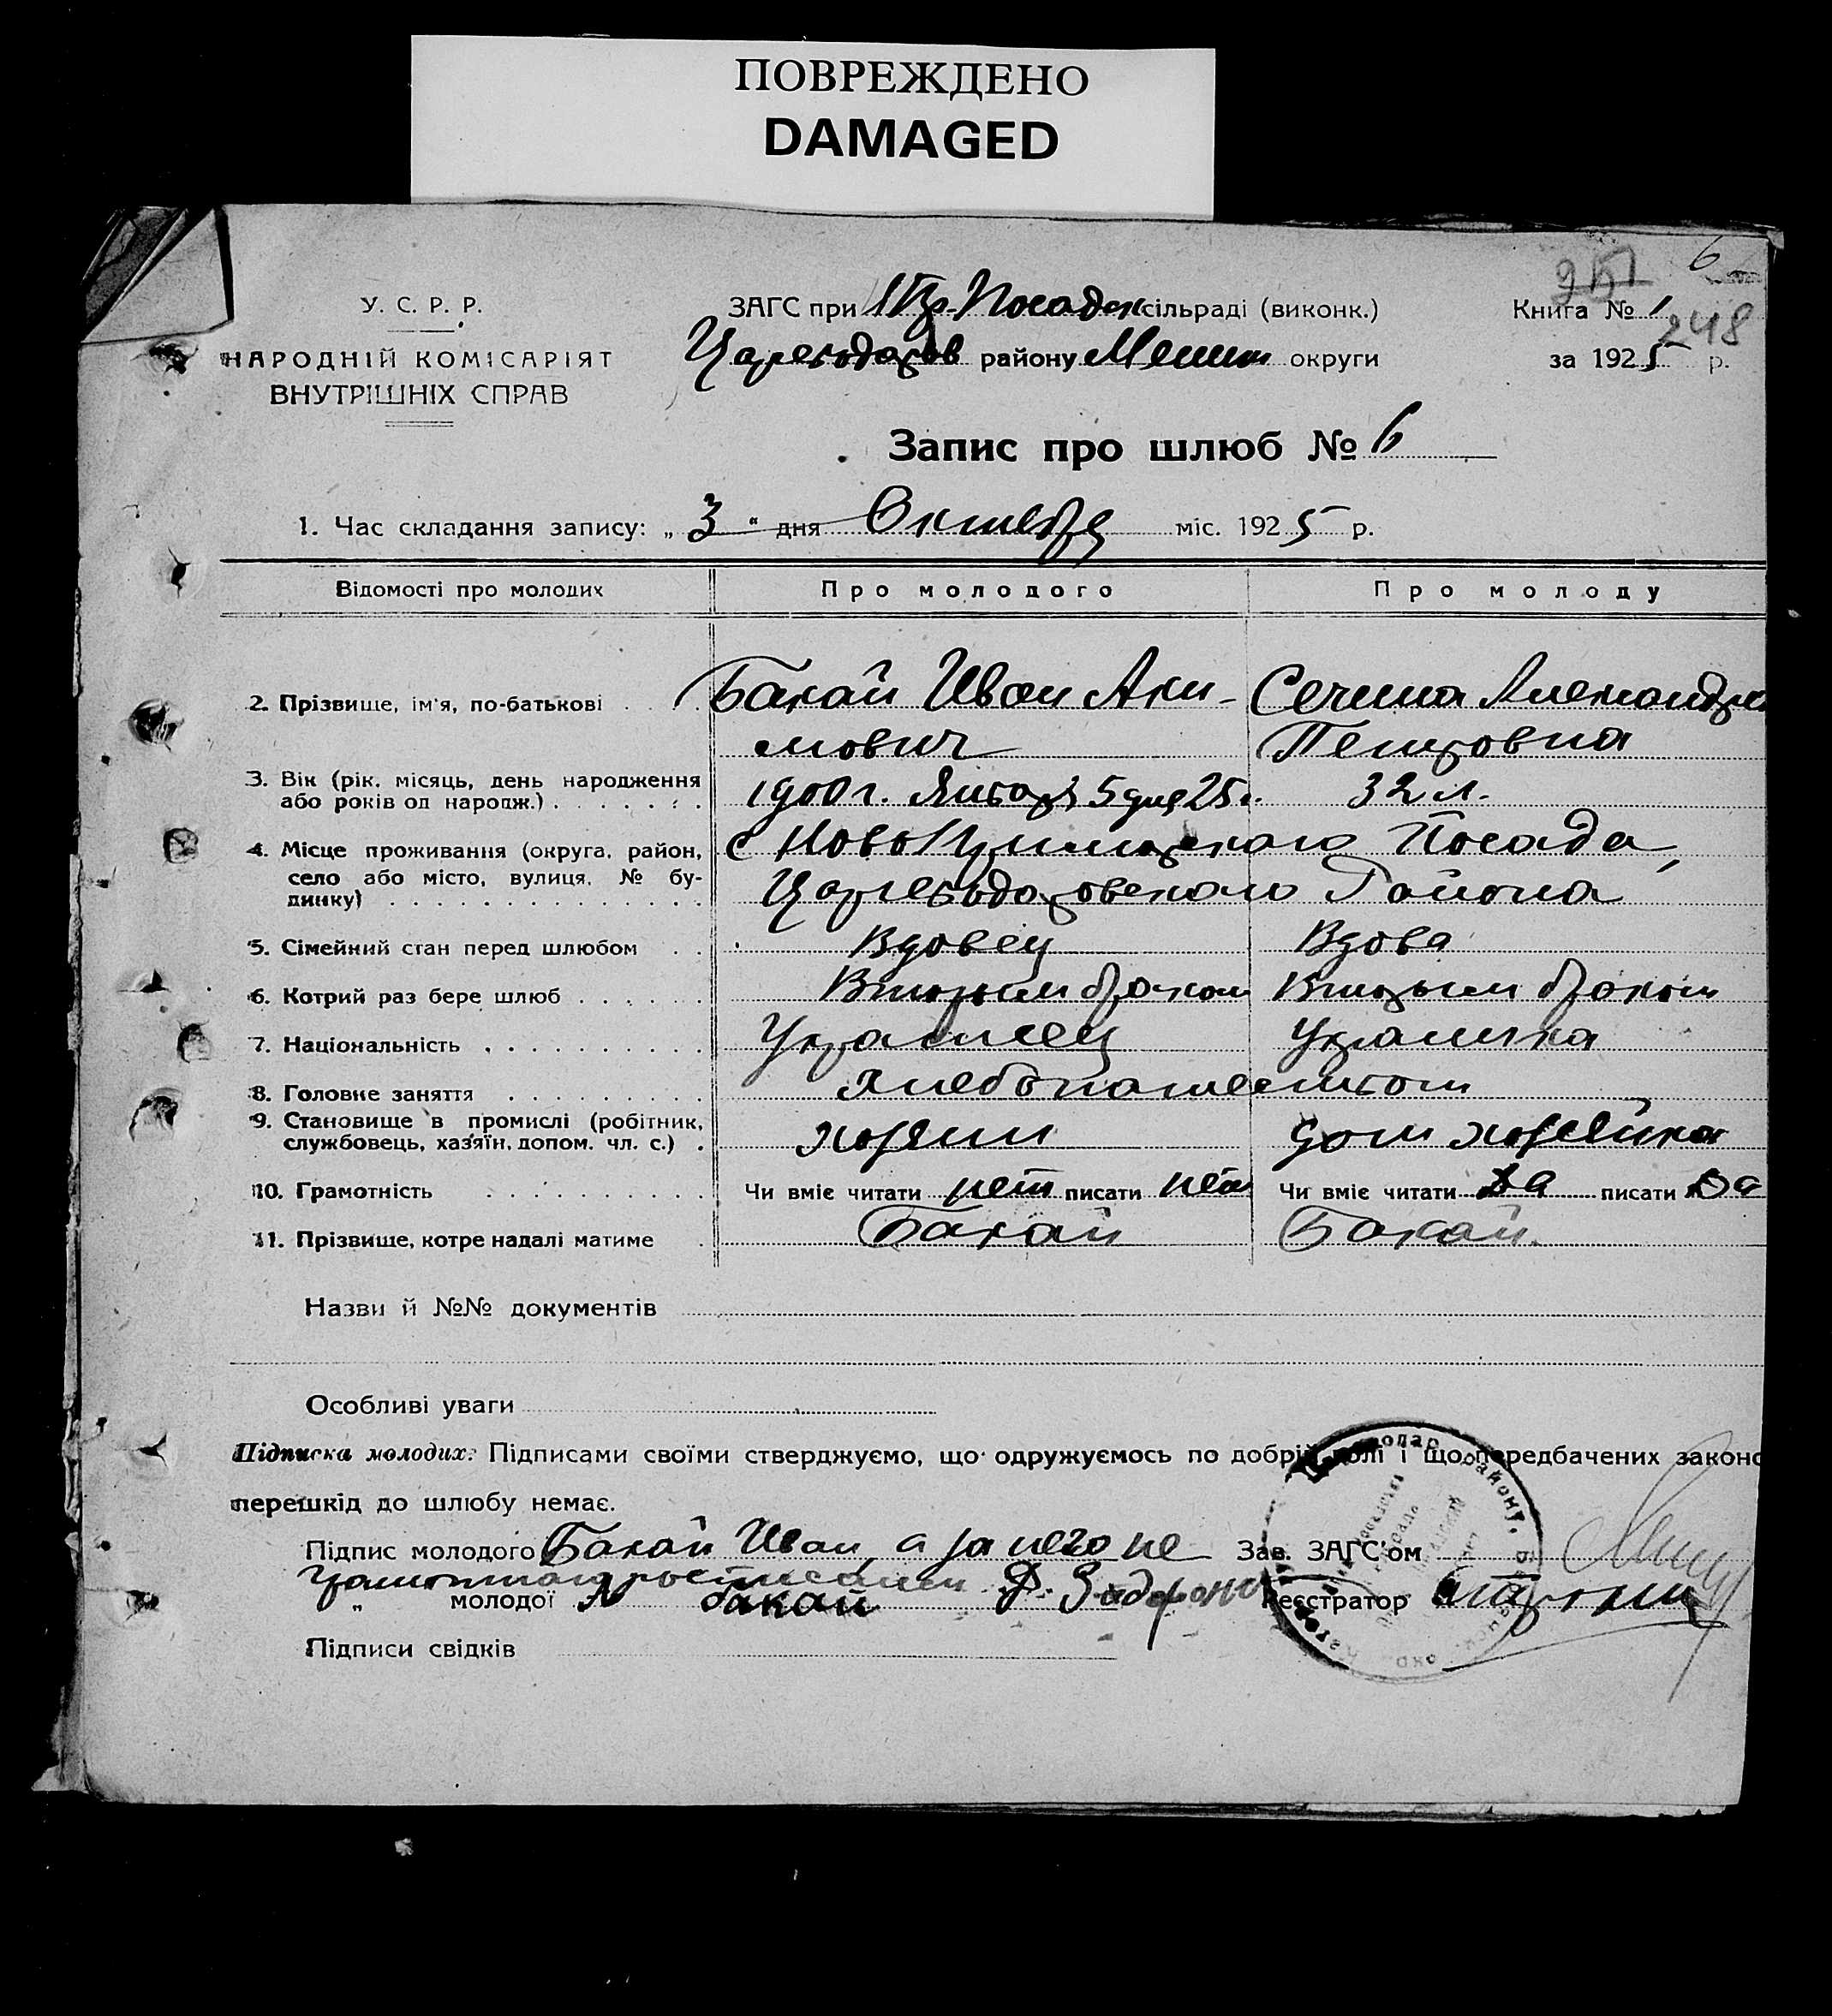 ПОВРЕЖДЕНО
DAMAGED
6
251
248
У. С. Р. Р.
НАРОДНІЙ КОМІСАРІЯТ
ВНУТРІШНІХ СПРАВ
ЗАГС при Посадск сільраді (виконк.)
району Мелит округи
Книга № 1
за 1925 р.
Запис про шлюб № 6
1. Час складання запису: „ 3 “ дня Октября міс. 1925 р.
Відомості про молодих
Про молодого
Про молоду
2. Прізвище, ім'я, по-батькові . . . .
Бакай Иван Аки-
мович
Сечина Александра
Петровна
3. Вік (рік, місяць, день народження
або років од народж.) . . . . . . .
1900 г. Января 5 дня 25 л.
32 л.
4. Місце проживання (округа, район,
село або місто, вулиця, № бу-
динку) . . . . . . . . . . . . . .
с Посада,
Района
5. Сімейний стан перед шлюбом . .
Вдовец
Вдова
6. Котрий раз бере шлюб . . . . . .
Вторым браком
Вторым браком
7. Національність . . . . . . . . . .
Украинец
Украинка
8. Головне заняття . . . . . . . . .
Хлебопашеством
9. Становище в промислі (робітник,
службовець, хаз'яїн, допом. чл. с.) .
хозяин
дом хозяйка
10. Грамотність . . . . . . . . . .
Чи вміє читати нет писати нет
Чи вміє читати да писати да
11. Прізвище, котре надалі матиме .
Бакай
Бакай.
Назви й №№ документів
Особливі уваги
Підписка молодих: Підписами своїми стверджуємо, що одружуємось по добрій волі і що передбачених законо
перешкід до шлюбу немає.
Підпис молодого Бакай Иван, а за него не
грамотного росписался
„ молодої Бакай
Підписи свідків
Зав. ЗАГС'ом
Реєстратор
району,